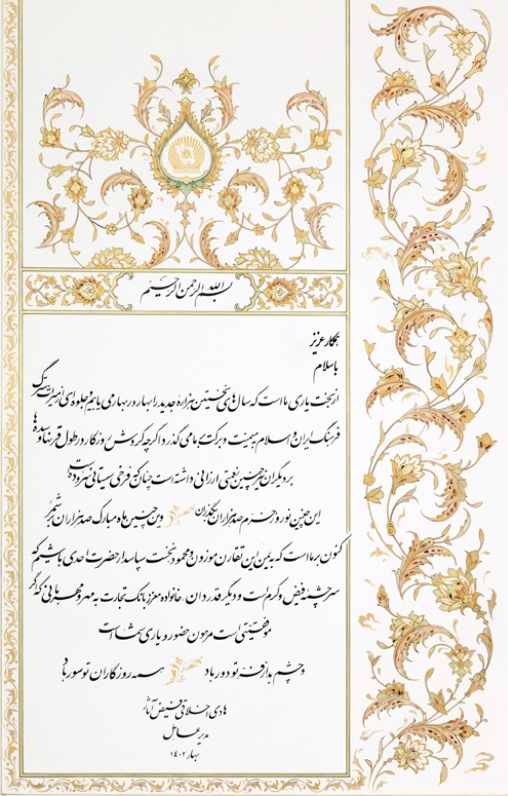 بسم الله الرحمن الرحیم
همکار عزیز
با سلام
از بخت یاری ما است که سال های نخستین هزاره جدید را بهار در بهار می یابیم و جلوه ای از میراث سترگ
فرهنگ ایران و اسلام به یمنت و برکت بر ما می گذرد اگرچه گردش روزگار در طول قرنها و سده ها
بر دیگران نیز چنین نعمتی ارزانی داشته است چنان که فرخی سیستانی سروده است
این چنین نوروز خرم صد هزاران بگذران وین چنین ماه مبارک صد هزاران بر شمر
کنون بر ما است که به یمن این تقارن موزون و محمود نخست سپاسدار حضرت احدی باشیم که
سرچشمه فیض و کرم است و دیگر قدردان خانواده معزز بانک تجارت به مهر و مهربانی که گر
موفقیتی است مرهون حضور و یاری شما است
چشم بد از فر تو دور باد همه روزگاران تو سور باد
هادی اخلاقی فیض آثار
مدیر عامل
بهار ۱۴۰۲